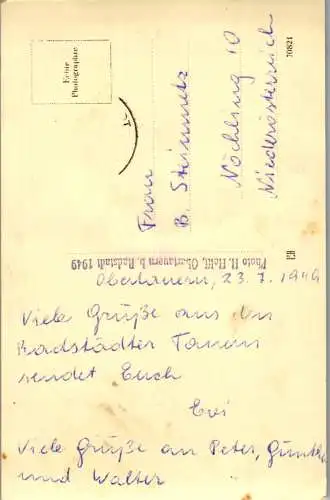 Echte
Photographie
Frau
B. Steinmetz
Nöchling 10
Niederösterreich
70821
Photo H. Heiß, Obertauern b. Radstadt 1949
Obertauern, 23. 7. 1949
Viele Grüße aus den
Radstädter Tauern
sendet Euch
Evi
Viele Grüße an Peter, Günther
und Walter